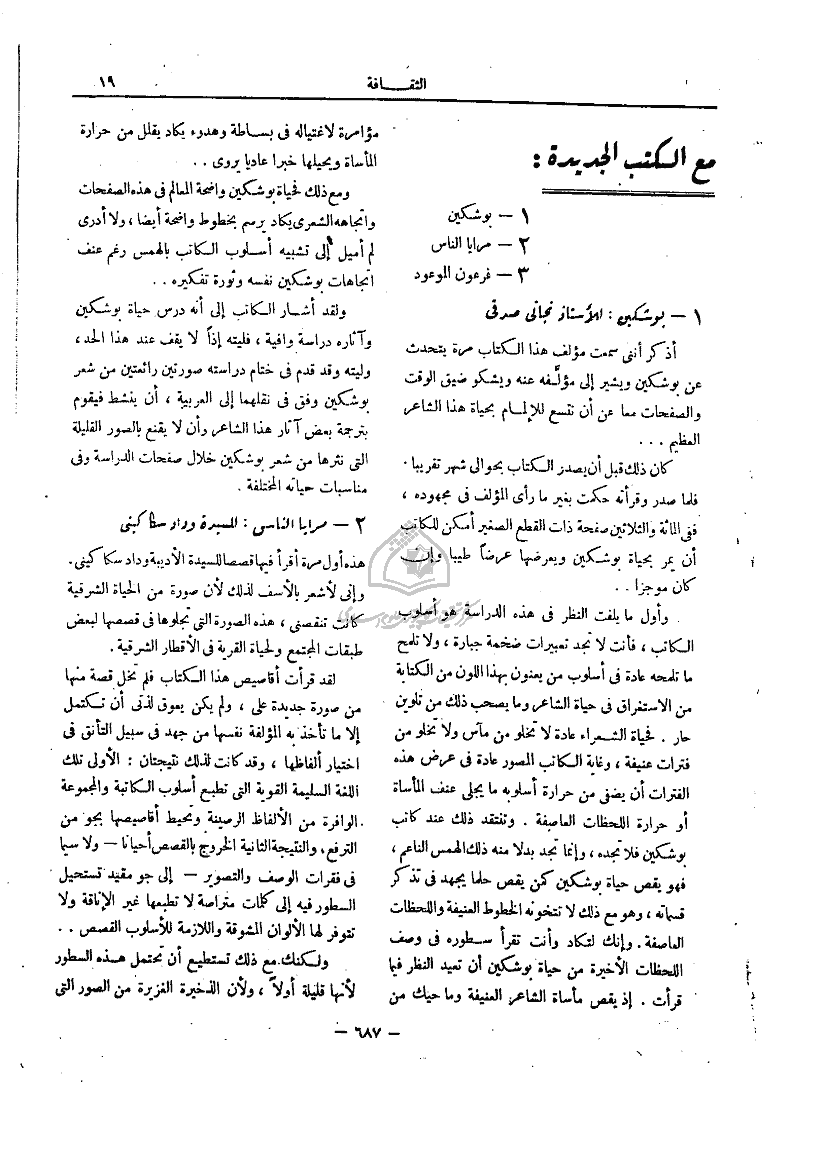 الثقافة
١٩
مع الكتب الجديدة :
١ – بوشكين
٢ – مرايا الناس
٣ – فرعون الموعود
١ – بوشكين : للأستاذ نجاتي صدقي
أذكر أننى سمعت مؤلف هذا الكتاب مرة يتحدث
عن بوشكين ويشير إلى مؤلَّفه عنه ويشكو ضيق الوقت
والصفحات معا عن أن تتسع للإلمام بحياة هذا الشاعر
العظيم . . .
كان ذلك قبل أن يصدر الكتاب بحوالى شهر تقريبا .
فلما صدر وقرأته حكمت بغير ما رأى المؤلف فى مجهوده ،
ففى المائة والثلاثين صفحة ذات القطع الصغير أمكن للكاتب
أن يمر بحياة بوشكين ويعرضها عرضاً طيبا وإن
كان موجزا . .
وأول ما يلفت النظر فى هذه الدراسة هو أسلوب
الكاتب ، فأنت لا تجد تعبيرات ضخمة جبارة ، ولا تلمح
ما تلمحه عادة فى أسلوب من يعنون بهذا اللون من الكتابة
من الاستغراق فى حياة الشاعر وما يصحب ذلك من تلوين
حار . فحياة الشعراء عادة لا تخلو من مآس ولا تخلو من
فترات عنيفة ، وغاية الكاتب المصور عادة فى عرض هذه
الفترات أن يضفى من حرارة أسلوبه ما يجلى عنف المأساة
أو حرارة اللحظات العاصفة . وتفتقد ذلك عند كاتب
بوشكين فلا تجده ، وإنما تجد بدلا منه ذلك الهمس الناعم ،
فهو يقص حياة بوشكين كمن يقص حلما يجهد فى تذكر
قسماته ، وهو مع ذلك لا تتخونه الخطوط العنيفة واللحظات
العاصفة . وإنك لتكاد وأنت تقرأ سطوره فى وصف
اللحظات الأخيرة من حياة بوشكين أن تعيد النظر فيما
قرأت . إذ يقص مأساة الشاعر العنيفة وما حيك من
مؤامرة لاغتياله فى بساطة وهدوء يكاد يقلل من حرارة
المأساة ويحيلها خبرا عاديا يروى . .
ومع ذلك فحياة بوشكين واضحة المعالم فى هذه الصفحات
واتجاهه الشعرى يكاد يرسم بخطوط واضحة أيضا ، ولا أدرى
لم أميل إلى تشبيه أسلوب الكاتب بالهمس رغم عنف
اتجاهات بوشكين نفسه وثورة تفكيره . .
ولقد أشار الكاتب إلى أنه درس حياة بوشكين
وآثاره دراسة وافية ، فليته إذاً لا يقف عند هذا الحد ،
وليته وقد قدم فى ختام دراسته صورتين رائعتين من شعر
بوشكين وفق فى نقلهما إلى العربية ، أن ينشط فيقوم
بترجمة بعض آثار هذا الشاعر وأن لا يقنع بالصور القليلة
التى نثرها من شعر بوشكين خلال صفحات الدراسة وفى
مناسبات حياته المختلفة .
٢ – مرايا الناس : للسيدة وداد سكاكينى
هذه أول مرة أقرأ فيها قصصا للسيدة الأديبة وداد سكاكينى.
وإنى لأشعر بالأسف لذلك لأن صورة من الحياة الشرقية
كانت تنقصنى ، هذه الصورة التى تجلوها فى قصصها لبعض
طبقات المجتمع ولحياة القرية فى الأقطار الشرقية .
لقد قرأت أقاصيص هذا الكتاب فلم تخل قصة منها
من صورة جديدة على ، ولم يكن يعوق لذتى أن تكتمل
إلا ما تأخذ به المؤلفة نفسها من جهد فى سبيل التأنق فى
اختيار ألفاظها ، وقد كانت لذلك نتيجتان : الأولى تلك
اللغة السليمة القوية التى تطبع أسلوب الكاتبة والمجموعة
الوافرة من الألفاظ الرصينة وتحيط أقاصيصها بجو من
الترفع ، والنتيجة الثانية الخروج بالقصص أحيانا – ولا سيما
فى فقرات الوصف والتصوير – إلى جو مقيد تستحيل
السطور فيه إلى كلمات متراصة لا تطبعها غير الإناقة ولا
تتوفر لها الألوان المشوقة واللازمة للأسلوب القصص . .
ولكنك مع ذلك تستطيع أن تحتمل هذه السطور
لأنها قليلة أولاً ، ولأن الذخيرة الغزيرة من الصور التى
– ٦٨٧ –